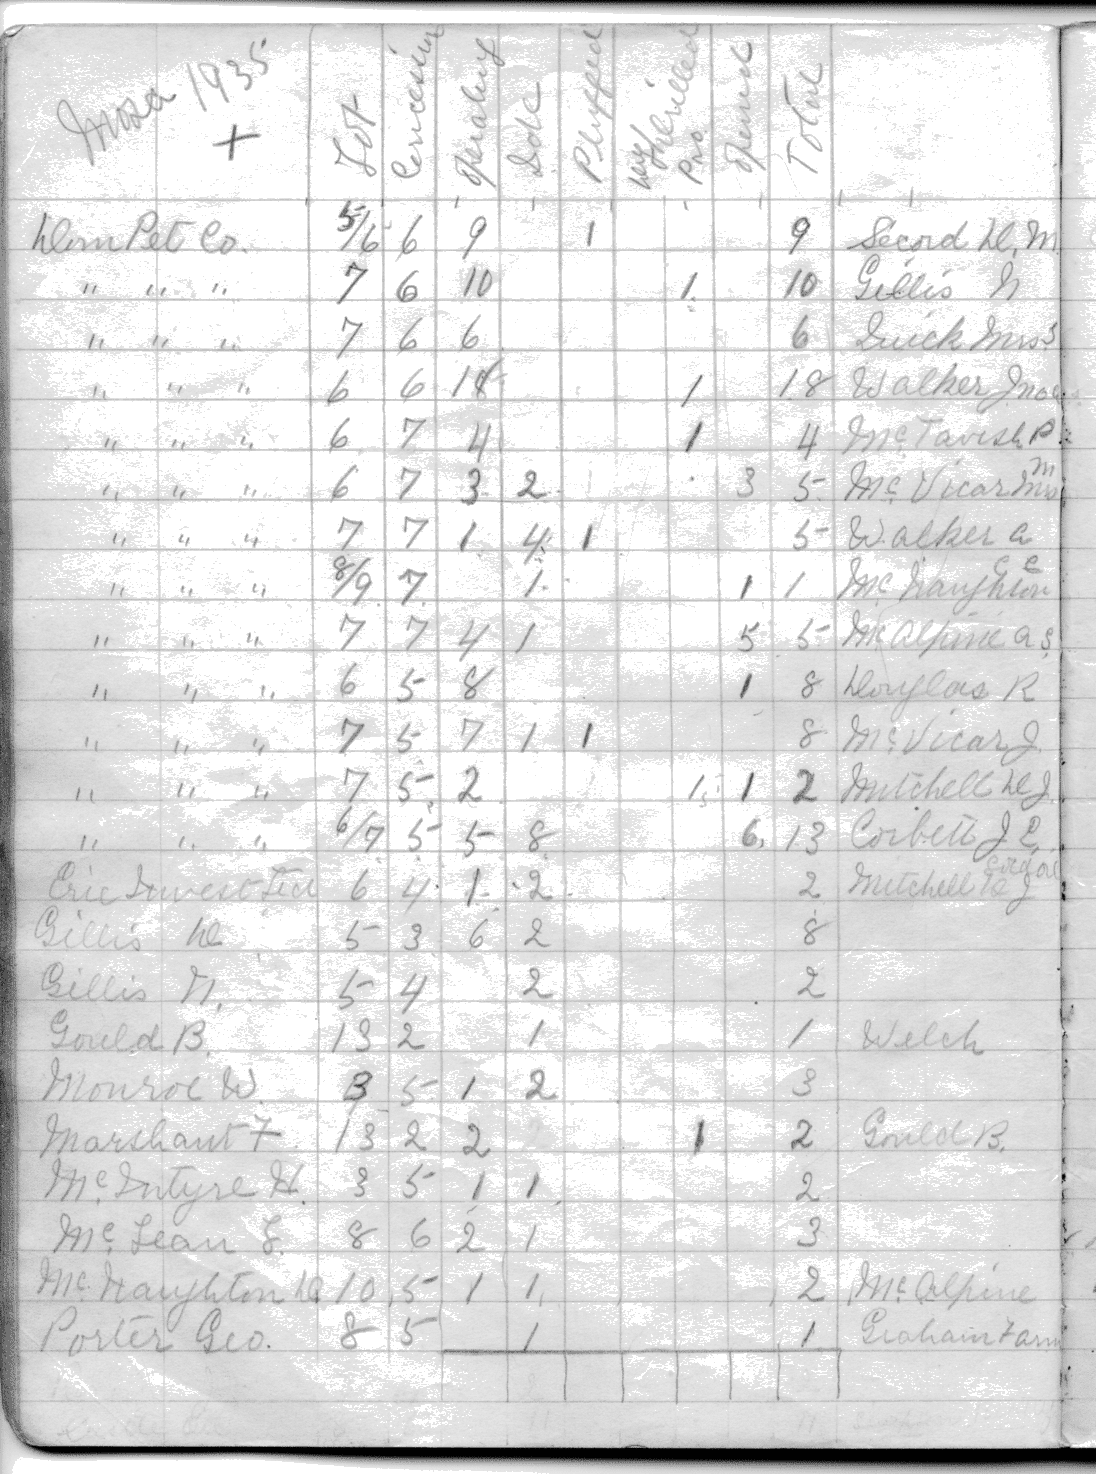 Mosa 1935
+
Lot Concession Operating Idle Plugged Drilled Pro. Total
Dom Pet Co. 5/6 6 9 1 9 Secord D. M
" " " 7 6 10 1 10 Gillis N
" " " 7 6 6 6 Quick Mrs S
" " " 6 6 18 1 18 Walker Jno
" " " 6 7 4 1 4 McTavish P
" " " 6 7 3 2 3 5 McVicar Mrs M
" " " 7 7 1 4 1 5 Walker A
" " " 8/9 7 1 1 1 McNaughton
" " " 7 7 4 1 5 5 McAlpine A S
" " " 6 5 8 1 8 Douglas R
" " " 7 5 7 1 1 8 McVicar J.
" " " 7 5 2 1 1 2 Mitchell D J.
" " " 6/7 5 5 8 6 13 Corbett J C.
Eric Invest Ltd 6 4 1 2 2 Mitchell D J
Gillis D 5 3 6 2 8
Gillis N. 5 4 2 2
Gould B. 13 2 1 1 Welch
Monroe W. 3 5 1 2 3
Marshant F 13 2 2 1 2 Gould B.
McIntyre H. 3 5 1 1 2
McLean L. 8 6 2 1 3
McNaughton D 10 5 1 1 2 McAlpine
Porter Geo. 8 5 1 1 Graham Farm